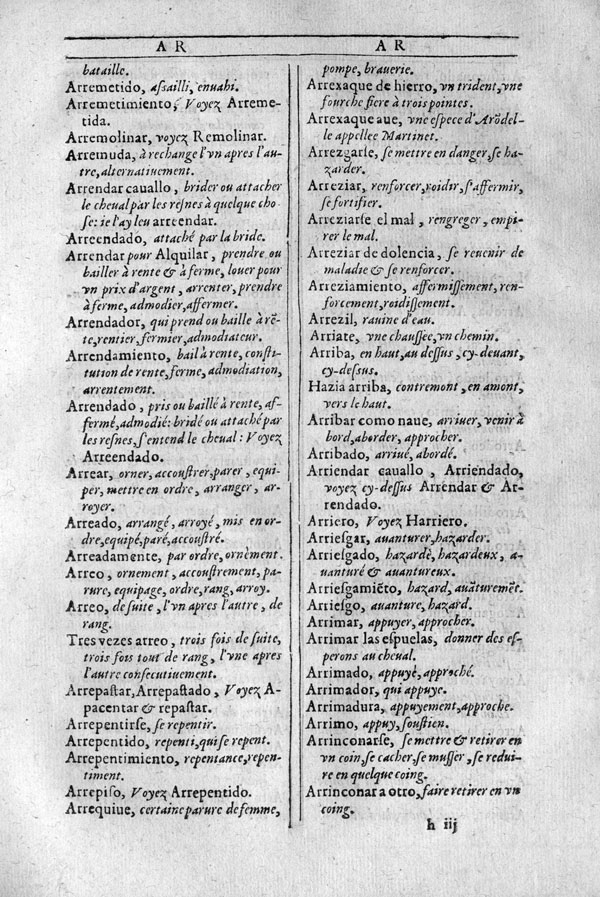 AR
bataille.
Arremetido, aſſailli, enuahi.
Arremetimiento, Voyez Arreme-
tida.
Arremolinar, voyez Remolinar.
Arremuda, à rechange l'vn apres l'au-
tre, alternatiuement.
Arrendar cauallo, brider ou attacher
le cheual par les reſnes à quelque cho
ſe: ie l'ay leu arreendar.
Arreendado, attaché par la bride.
Arrendar pour Alquilar, prendre ou
bailler à rente & à ferme, louer pour
vn prix d'argent, arrenter, prendre
à ferme, admodier, affermer.
Arrendador, qui prend ou baille à rē-
te, rentier, fermier, admodiateur.
Arrendamiento, bail à rente, conſti-
tution de rente, ferme, admodiation,
arrentement.
Arrendado, pris ou baillé à rente, af-
fermé, admodié: bridé ou attaché par
les reſnes, s'entend le cheual: Voyez
Arreendado.
Arrear, orner, accouſtrer, parer, equi-
per, mettre en ordre, arranger, ar-
royer.
Arreado, arrangé, arroyé, mis en or-
dre, equipé, paré, accouſtré.
Arreadamente, par ordre, ornèment.
Arreo, ornement, accouſtrement, pa-
rure, equipage, ordre, rang, arroy.
Arreo, de ſuite, l'vn apres l'autre, de
rang.
Tres vezes arreo, trois fois de ſuite,
trois fois tout de rang, l'vne apres
l'autre conſecutiuement.
Arrepaſtar, Arrepaſtado, Voyez A-
pacentar & repaſtar.
Arrepentirſe, ſe repentir.
Arrepentido, repenti, qui ſe repent.
Arrepentimiento, repentance, repen-
timent.
Arrepiſo, Voyez Arrepentido.
Arrequiue, certaine parure de femme,
AR
pompe, brauerie.
Arrexaque de hierro, vn trident, vne
fourche fiere à trois pointes.
Arrexaque aue, vne eſpece d'Arōdel-
le appellee Martinet.
Arrezgarſe, ſe mettre en danger, ſe ha-
zarder.
Arreziar, renforcer, roidir, s'affermir,
ſe fortifier.
Arreziarſe el mal, rengreger, empi-
rer le mal.
Arreziar de dolencia, ſe reuenir de
maladie & ſe renforcer.
Arreziamiento, affermiſſement, ren-
forcement, roidiſſement.
Arrezil, rauine d'eau.
Arriate, vne chauſſée, vn chemin.
Arriba, en haut, au deſſus, cy-deuant,
cy-deſſus.
Hazia arriba, contremont, en amont,
vers le haut.
Arribar como naue, arriuer, venir à
bord, aborder, approcher.
Arribado, arriué, abordé.
Arriendar cauallo, Arriendado,
voyez cy-deſſus Arrendar & Ar-
rendado.
Arriero, Voyez Harriero.
Arrieſgar, auanturer, hazarder.
Arrieſgado, hazardé, hazardeux, a-
uanturé & auantureux.
Arrieſgamiēto, hazard, auāturemēt.
Arrieſgo, auanture, hazard.
Arrimar, appuyer, approcher.
Arrimar las eſpuelas, donner des eſ-
perons au cheual.
Arrimado, appuyé, approché.
Arrimador, qui appuye.
Arrimadura, appuyement, approche.
Arrimo, appuy, ſouſtien.
Arrinconarſe, ſe mettre & retirer en
vn coin, ſe cacher, ſe muſſer, ſe redui-
re en quelque coing.
Arrinconar a otro, faire retirer en vn
coing.
h iij